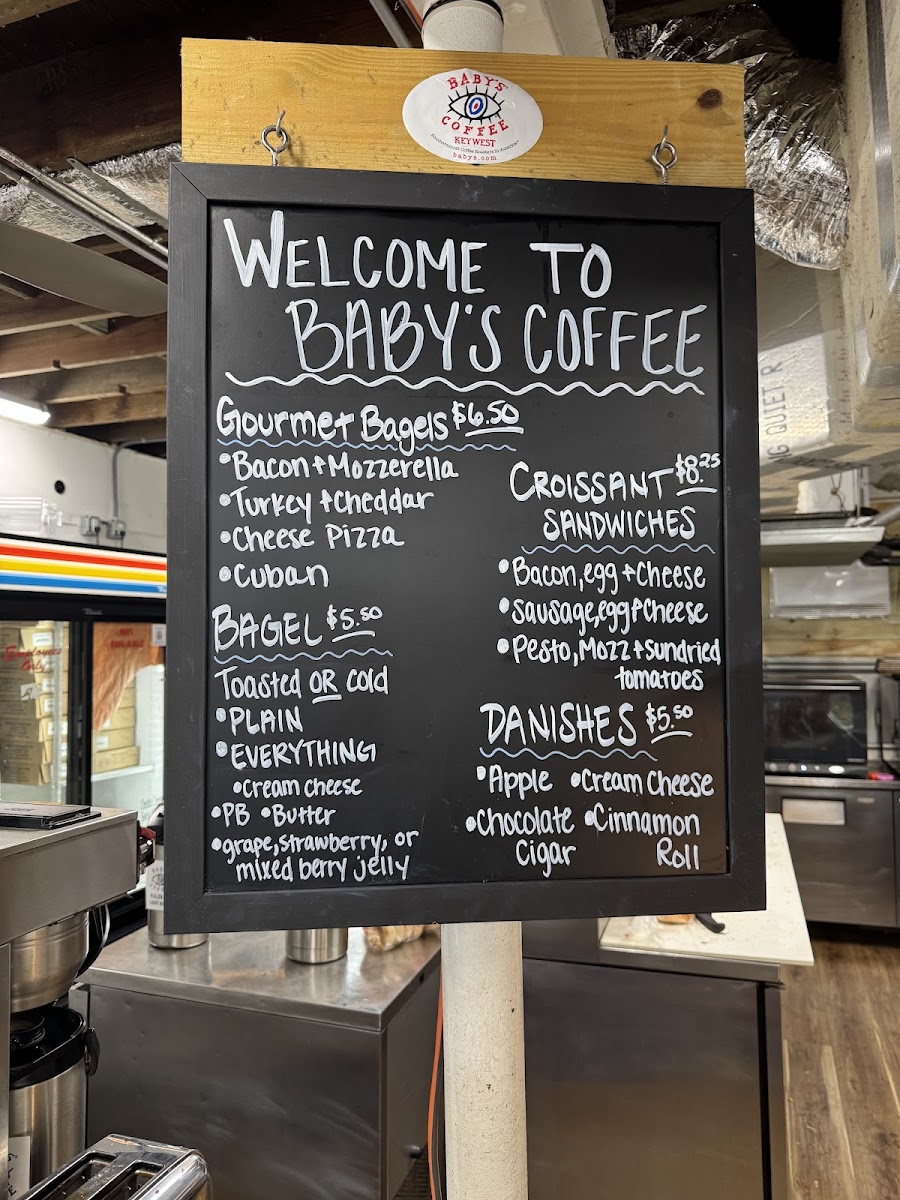 BABY'S
COFFEE
KEY WEST
Southernmost Coffee Roasters in America!
babys.com
WELCOME TO
BABY'S COFFEE
Gourmet Bagels $6.50
•Bacon + Mozzerella
•Turkey + Cheddar
•Cheese Pizza
•Cuban
BAGEL $5.50
Toasted OR cold
•PLAIN
•EVERYTHING
•Cream cheese
•PB •Butter
•grape, strawberry, or
mixed berry jelly
CROISSANT $8.25
SANDWICHES
•Bacon, egg + Cheese
•Sausage, egg + Cheese
•Pesto, Mozz + Sundried
tomatoes
DANISHES $5.50
•Apple •Cream Cheese
•Chocolate •Cinnamon
Cigar Roll
Employees
Only
NOT
FOR SALE
QUIET R